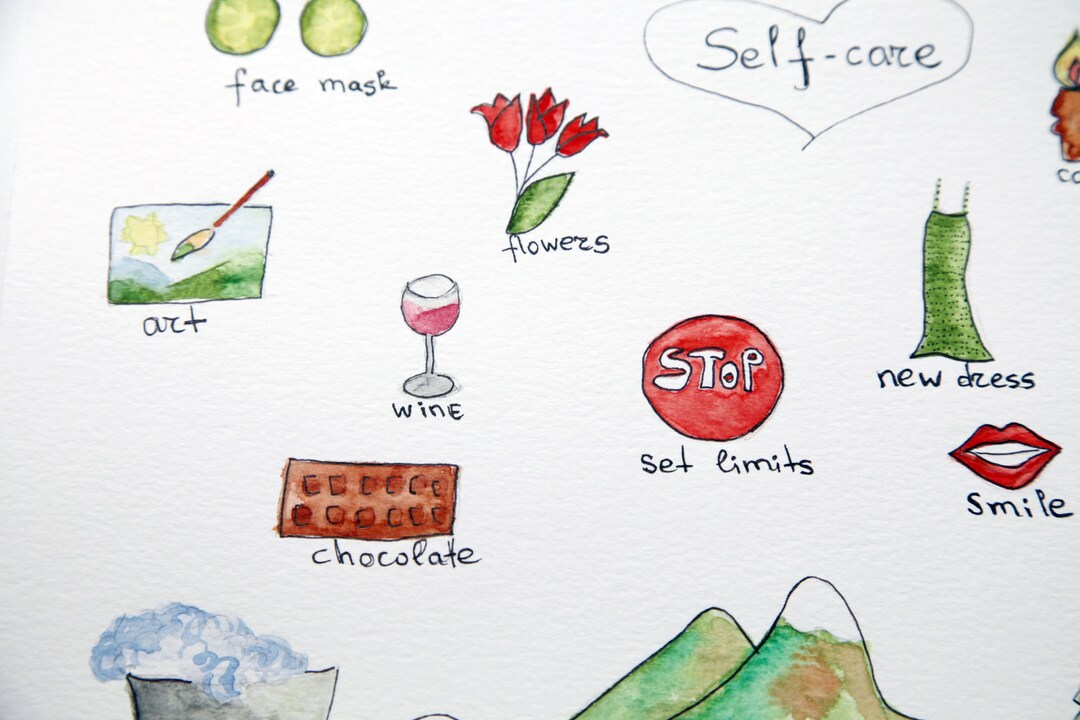 Self-care
face mask
flowers
art
wine
STOP
set limits
new dress
smile
chocolate